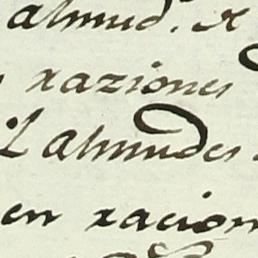 almud. A
raziones
l almudes
en racion